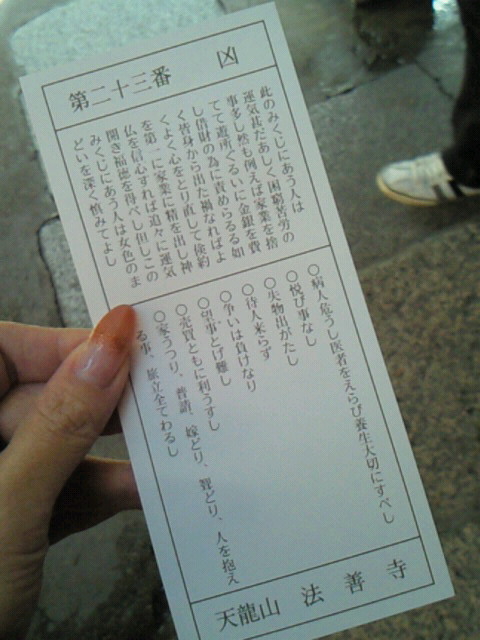 第二十三番 凶
此のみくじにあう人は
運気甚だあしく困窮苦労の
事多し然も例えば家業を捨
てて遊所ぐるいに金銀を費
し借財の為に責めらるる如
く皆身から出た禍なればよ
くよく心をとり直して倹約
を第一に家業に精を出し神
仏を信心すれば追々に運気
開き福徳を得べし但しこの
みくじにあう人は女色のま
どいを深く慎みてよし
○病人危うし医者をえらび養生大切にすべし
○悦び事なし
○失物出がたし
○待人来らず
○争いは負けなり
○望事とげ難し
○売買ともに利うすし
○家うつり、普請、嫁どり、聟どり、人を抱え
る事、旅立全てわるし
天龍山 法善寺